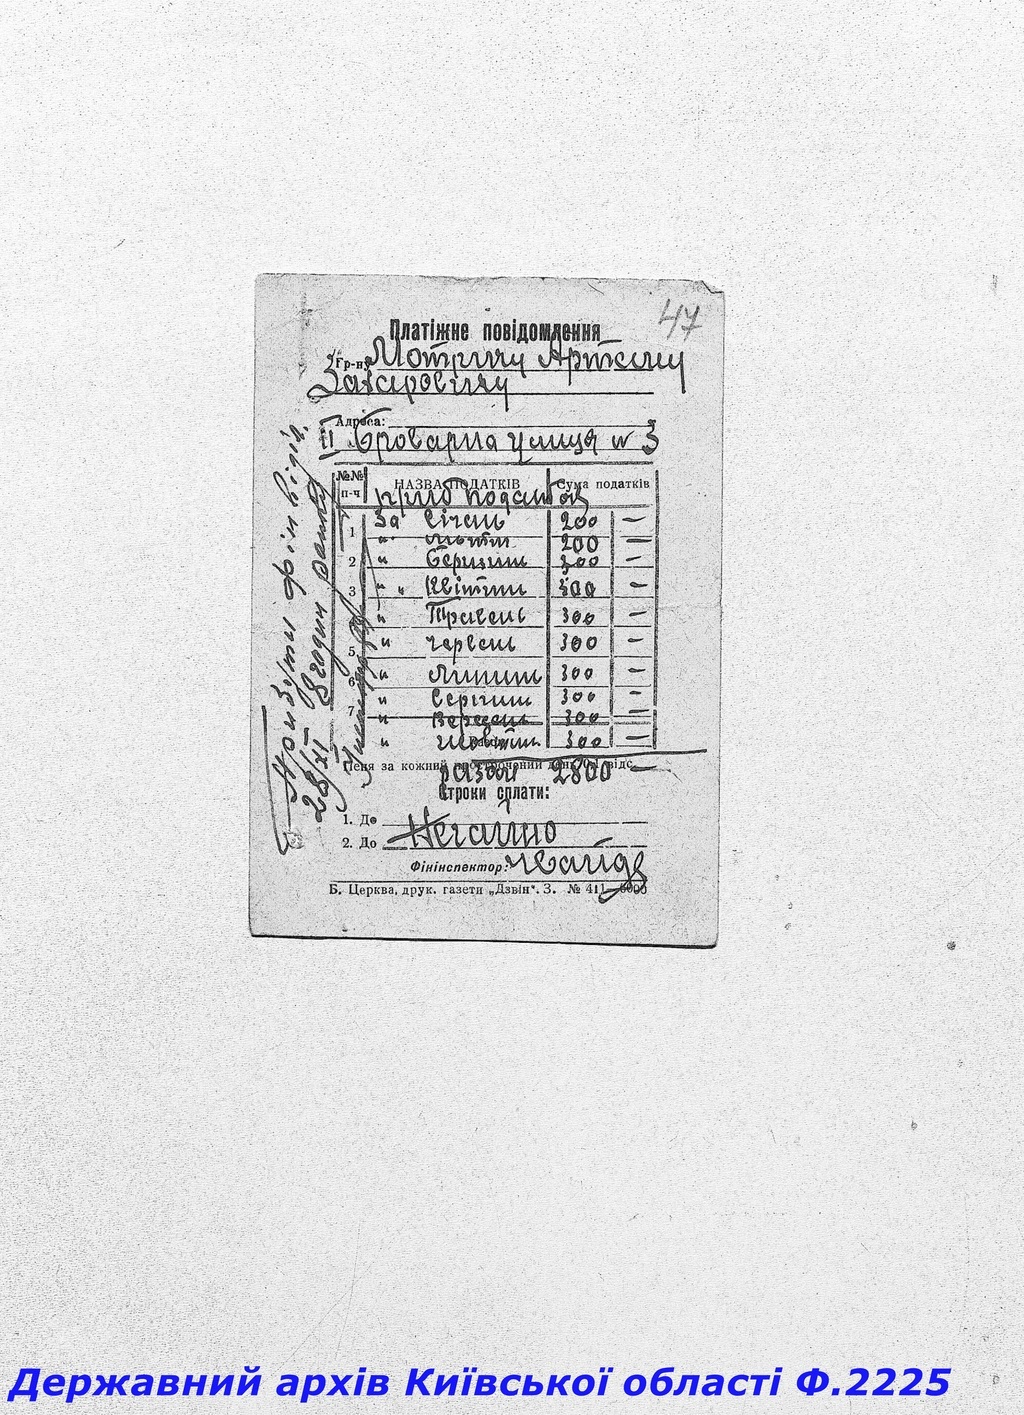 47
Платіжне повідомлення
Гр-ну Мотричу Артему
Захаровичу
Адреса:
II Броварна улиця № 3
№№ п-ч НАЗВА ПОДАТКІВ Сума податків
приб податок
1 За Січень 200 —
" Лютий 200 —
2 " Березинь 300
3 " " Квітинь 300 —
" Травень 300 —
5 " Червень 300 —
6 " Липинь 300 —
" Серпинь 300 —
7 " Вересень 300 —
" Жовтинь 300 —
Пеня за кожний прострочений день 0,1 відс.
разом 2800 —
Строки сплати:
1. До
2. До Негайно
Фінінспектор:
Б. Церква, друк. газети „Дзвін". З. № 411—5000
Прибути фінвідділ.
28/XI 9 годин ранку
Державний архів Київської області Ф.2225